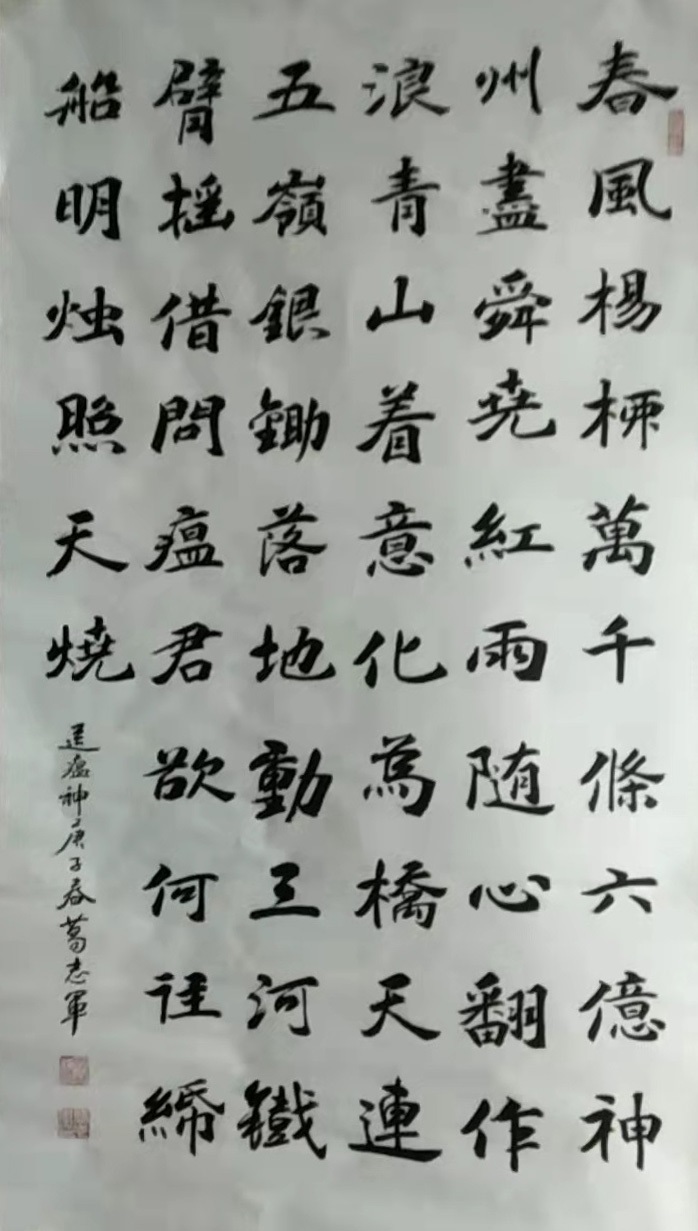 春風楊柳萬千條六億神
州盡舜堯紅雨随心翻作
浪青山着意化為橋天連
五嶺銀鋤落地動三河鐵
臂摇借問瘟君欲何往紙
船明烛照天燒
送瘟神二庚子春葛志軍